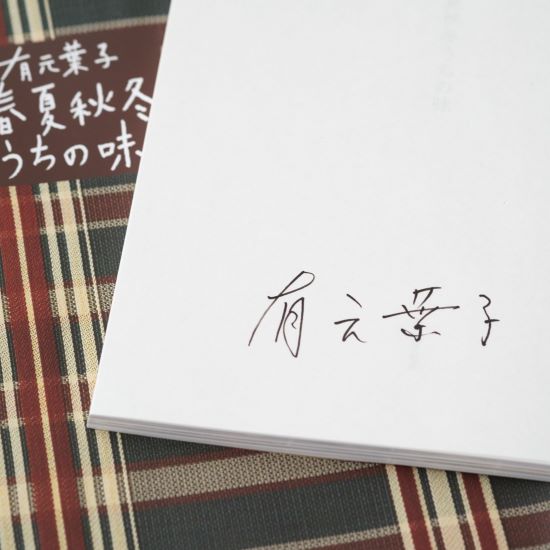 有元葉子
春夏秋冬
うちの味
有元葉子